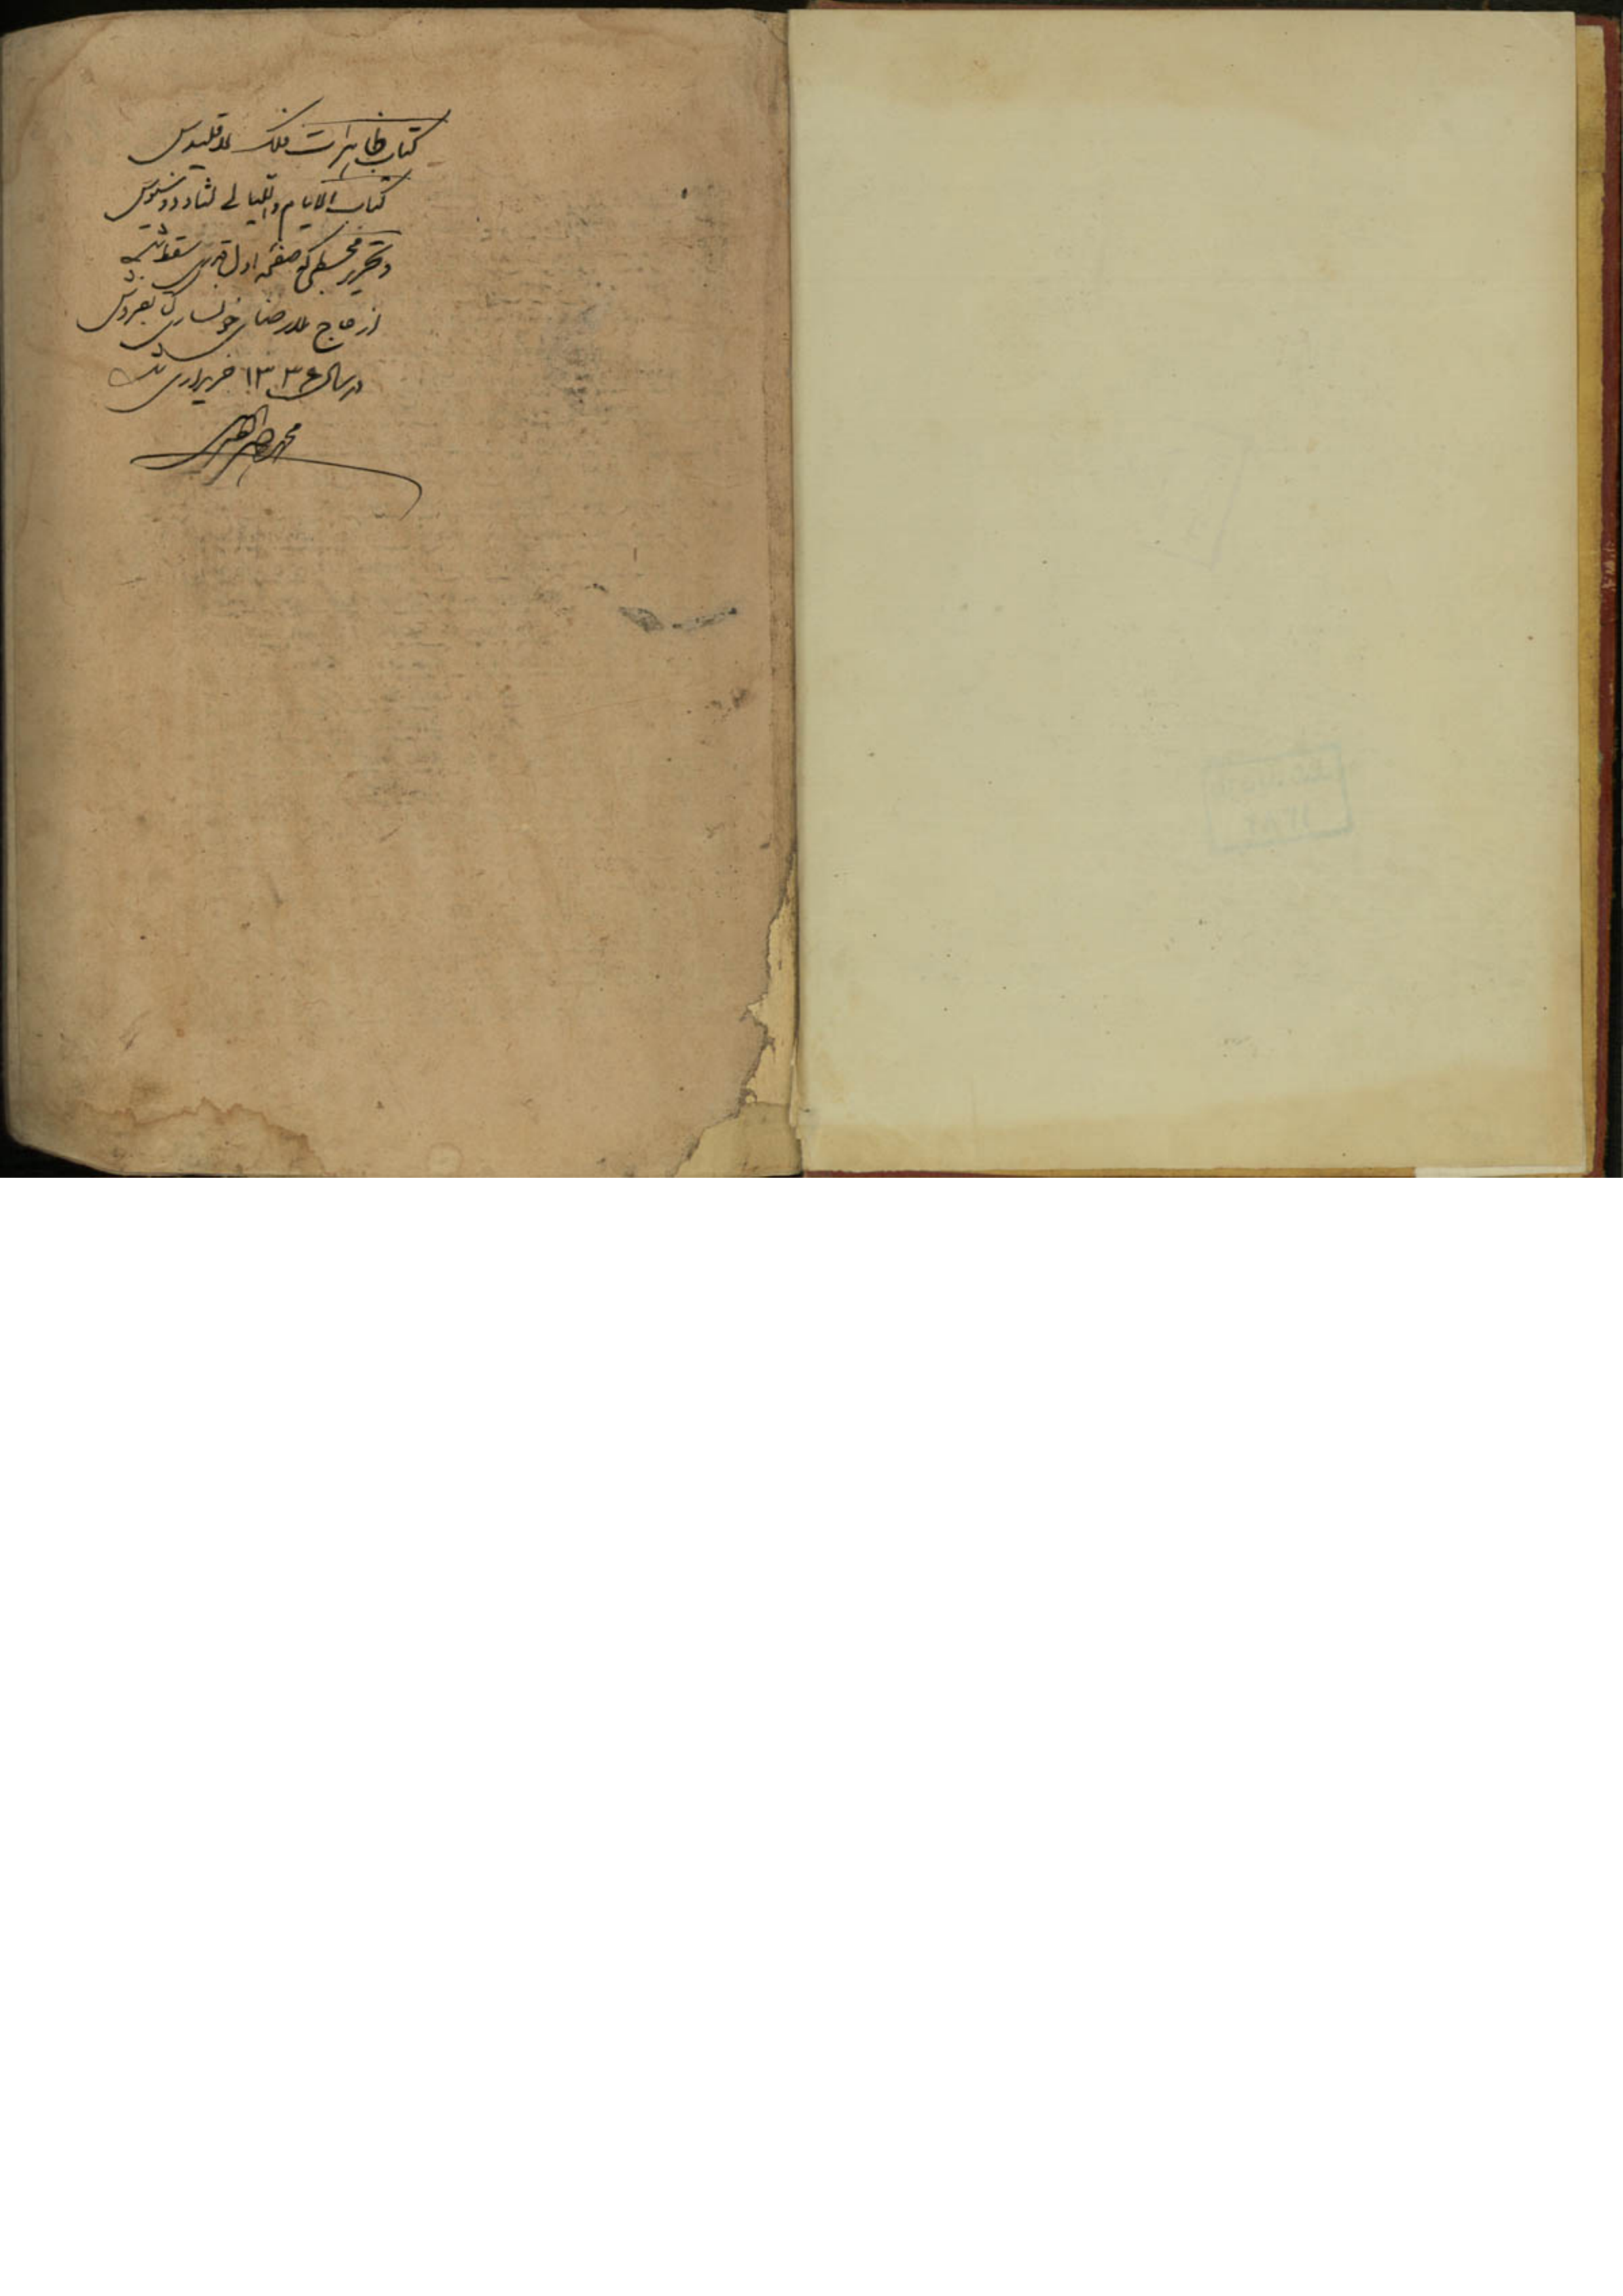 کتاب ظاهرات فلک لاقلیدس
کتاب الایام و اللیالی لثاودوسیوس
و تحریر مجسطی که صفحه اول قدری سقط شده
از حاج ملا رضای خونساری کتابفروش
در سال ۱۳۳۶ خریداری شد